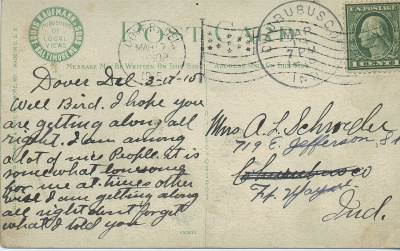 POST CARD
LOUIS KAUFMANN & SONS
PUBLISHERS
OF
LOCAL
VIEWS
BALTIMORE MD.
MESSAGE MAY BE WRITTEN ON THIS SIDE
ADDRESS ONLY ON THIS SIDE
CHURUBUSCO
MAR
7 PM
IND.
1 CENT 1
Dover Del 3-17-15
Well Bird. I hope you
are getting along all
right. I am among
a lot of nice People. It is
somewhat lonesome
for me at times other
wise I am getting along
all right dont forget
what I told you
Mrs A. L. Schrader
719 E. Jefferson St
Churubusco
Ft Wayne
Ind.